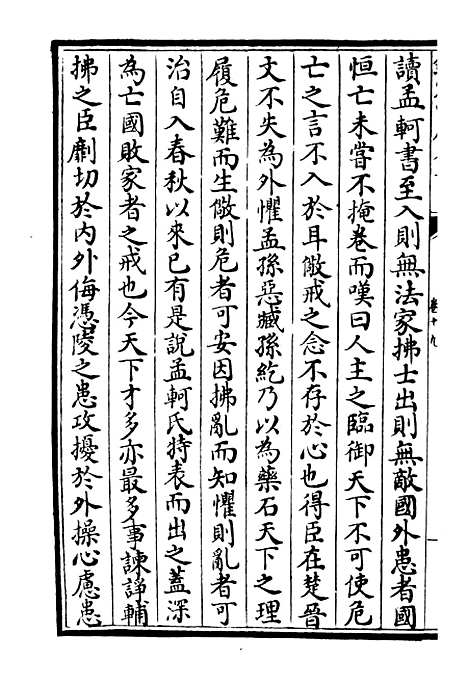 讀孟軻書至入則無法家拂士出則無敵國外患者國
恒亡未嘗不掩卷而嘆曰人主之臨御天下不可使危
亡之言不入於耳儆戒之念不存於心也得臣在楚晉
文不失為外懼孟孫惡臧孫紇乃以為藥石天下之理
履危難而生儆則危者可安因拂亂而知懼則亂者可
治自入春秋以來已有是說孟軻氏特表而出之蓋深
為亡國敗家者之戒也今天下才多亦最多事諫諍輔
拂之臣劘切於內外侮憑陵之患攻擾於外操心慮患
卷十九